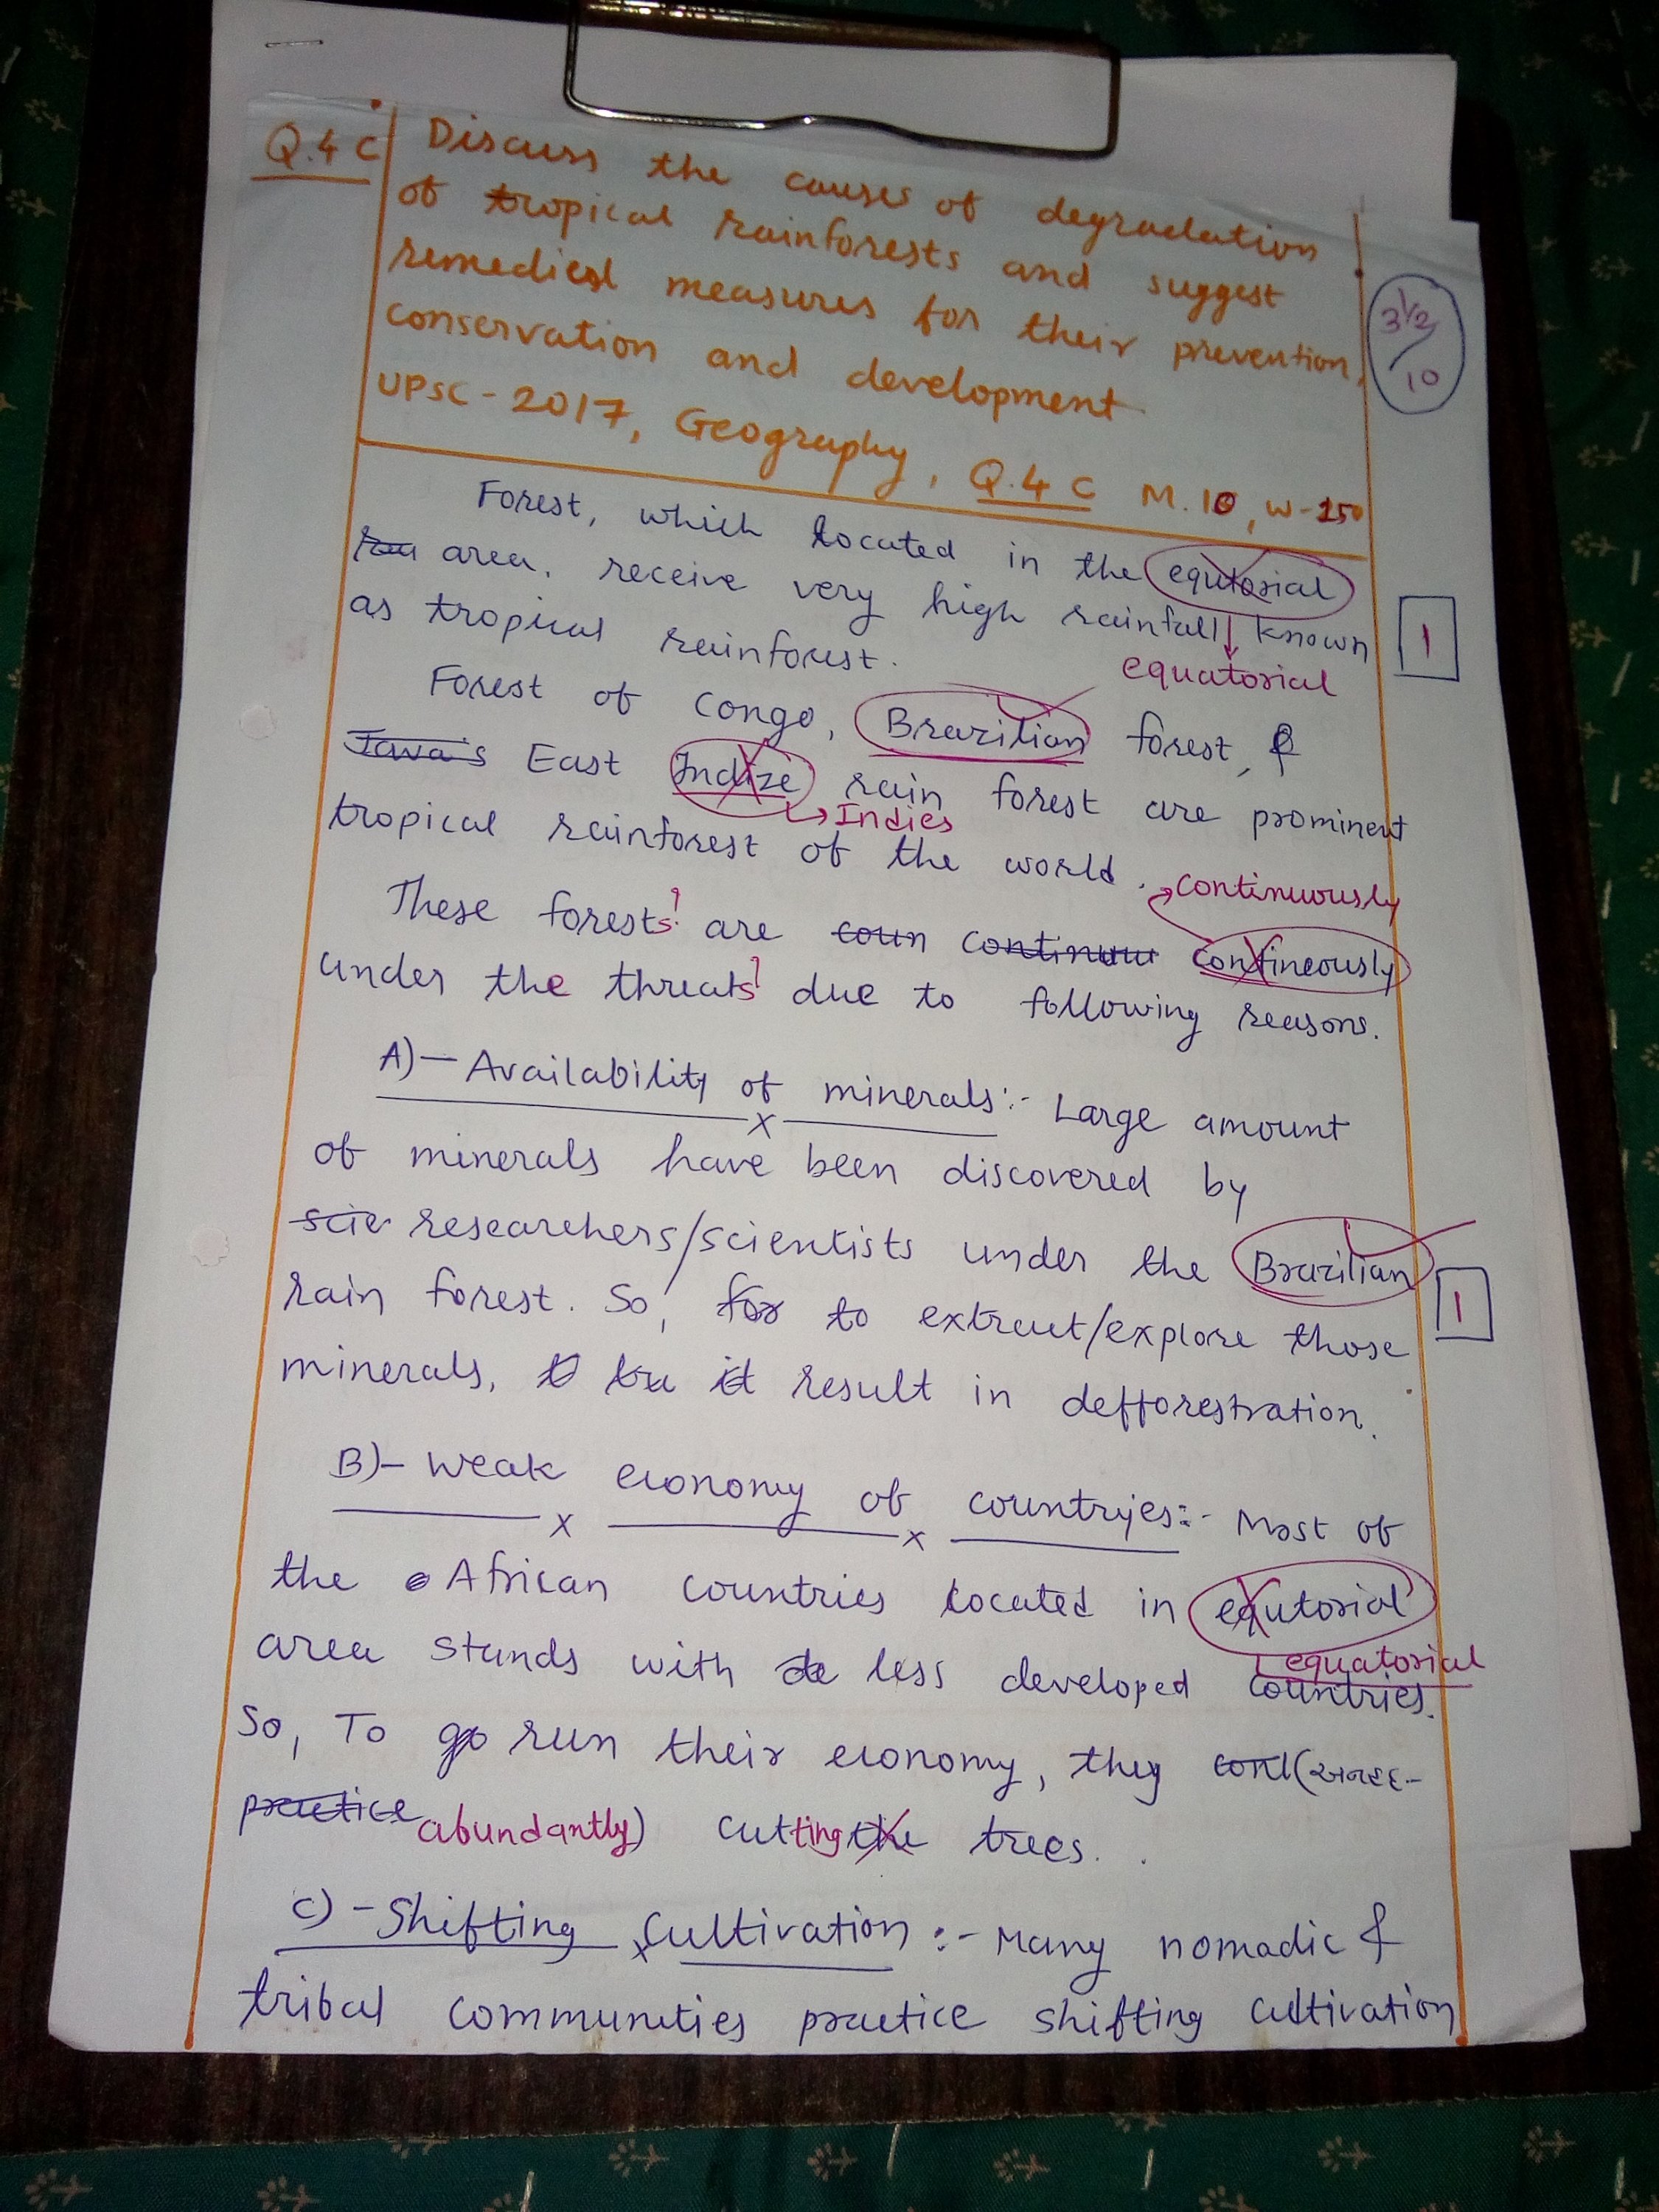 Q.4 C Discuss the causes of degradation
of tropical rainforests and suggest
remedial measures for their prevention,
conservation and development
UPSC - 2017, Geography, Q.4 C M.10, W-150
3½/10
Forest, which located in the equtorial
area. receive very high rainfall known
1
as tropical rainforest.
equatorial
Forest of Congo, Brazilian forest, &
Java's East Indize rain forest are prominent
Indies
tropical rainforest of the world.
continuously
These forests are coun continuu contineously
under the threats due to following reasons.
A)- Availability of minerals:- Large amount
of minerals have been discovered by
scie researchers/scientists under the Brazilian
rain forest. So, for to extract/explore those
1
minerals, it result in defforestration.
B)- Weak economy of countries:- Most of
the African countries located in equtorial
area stands with de less developed countries.
equatorial
So, To go run their economy, they
practice abundantly) cutting the trees.
C) - Shifting Cultivation :- Many nomadic &
tribal communities practice shifting cultivation